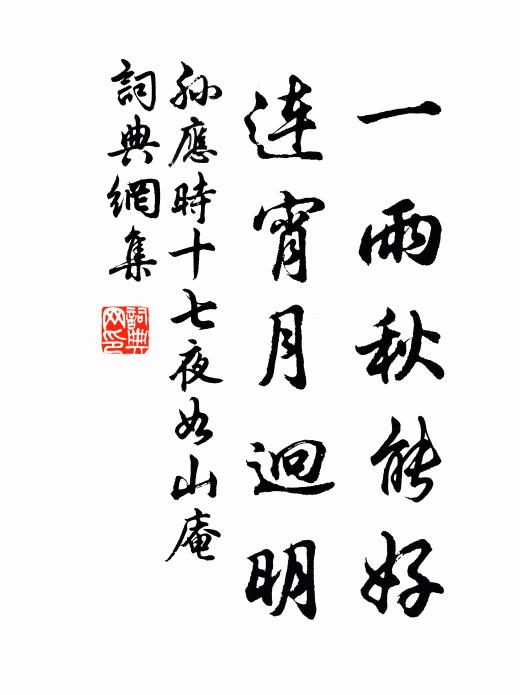 一雨秋能好
連宵月迥明
孙應時十七夜如山庵
詞典網集
詞典网印